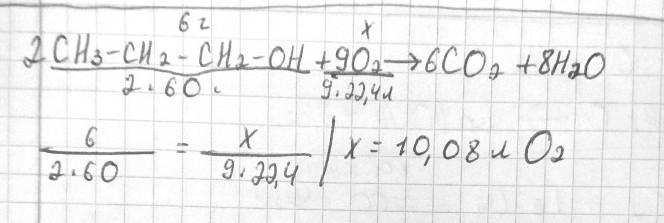 6 г x
2CH₃-CH₂-CH₂-OH+9O₂→6CO₂+8H₂O
2·60. 9·22,4л
6/2·60 = x/9·22,4 | x = 10,08 л O₂